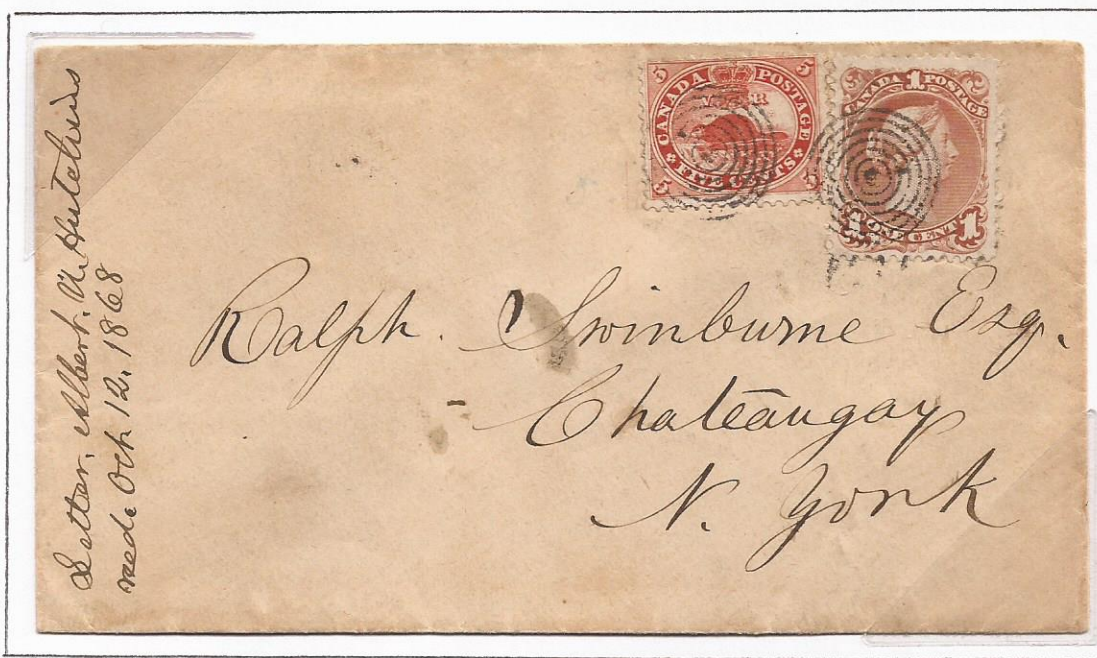 Letter, Albert. A. Hutchins
recd. Oct 12. 1868
5 CANADA POSTAGE 5
V R
5 FIVE CENTS 5
CANADA POSTAGE
1
1 ONE CENT 1
Ralph. Swinburne Esq.
Chateaugay
N. York